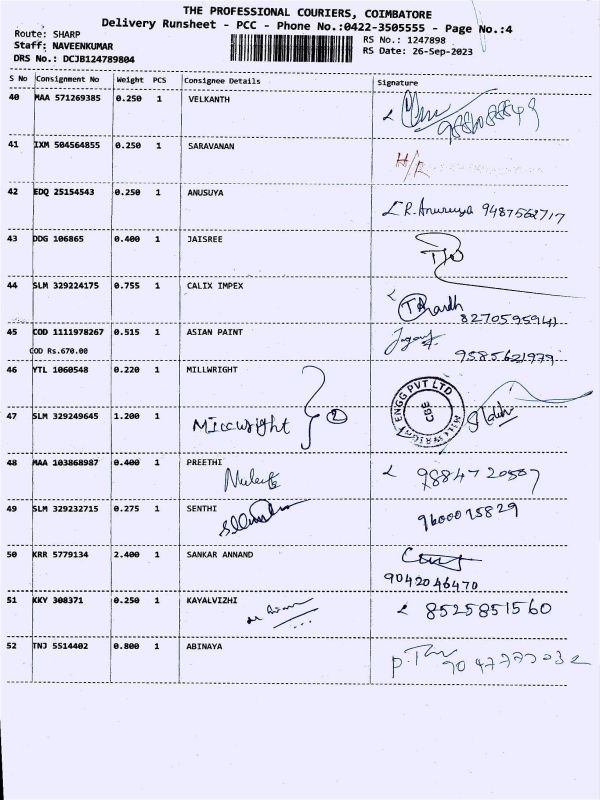 THE PROFESSIONAL COURIERS, COIMBATORE
Delivery Runsheet - PCC - Phone No.:0422-3505555 - Page No.:4
Route: SHARP
RS No.: 1247898
Staff: NAVEENKUMAR
RS Date: 26-Sep-2023
DRS No.: DCJB124789804
S No Consignment No Weight PCS Consignee Details Signature
40 MAA 571269385 0.250 1 VELKANTH
41 IXM 504564855 0.250 1 SARAVANAN H/R
42 EDQ 25154543 0.250 1 ANUSUYA R.Anusuya 9487562717
43 DDG 106865 0.400 1 JAISREE
44 SLM 329224175 0.755 1 CALIX IMPEX 8270595941
45 COD 1111978267 0.515 1 ASIAN PAINT 9585621979
COD Rs.670.00
46 YTL 1060548 0.220 1 MILLWRIGHT
ENGG PVT LTD
CBE
MILLWRIGHT
47 SLM 329249645 1.200 1 Millwright 2
48 MAA 103868987 0.400 1 PREETHI
49 SLM 329232715 0.275 1 SENTHI 9600015829
50 KRR 5779134 2.400 1 SANKAR ANNAND
9042046470
51 KKY 308371 0.250 1 KAYALVIZHI 8525851560
52 TNJ 5514402 0.800 1 ABINAYA